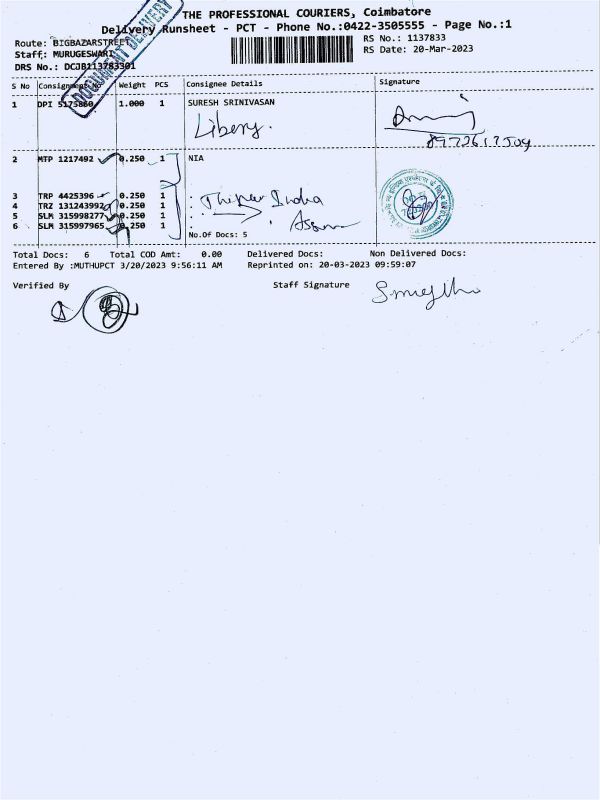 THE PROFESSIONAL COURIERS, Coimbatore
Delivery Runsheet - PCT - Phone No.:0422-3505555 - Page No.:1
Route: BIGBAZARSTREET
RS No.: 1137833
Staff: MURUGESWARI
RS Date: 20-Mar-2023
DRS No.: DCJB113783301
DOCUMENT DELIVERY
S No Consignment No Weight PCS Consignee Details Signature
1 DPI 5175860 1.000 1 SURESH SRINIVASAN
2 MTP 1217492 0.250 1 NIA
3 TRP 4425396 0.250 1 :
4 TRZ 131243992 0.250 1 :
5 SLM 315998277 0.250 1 :
6 SLM 315997965 0.250 1
No.Of Docs: 5
Total Docs: 6 Total COD Amt: 0.00 Delivered Docs: Non Delivered Docs:
Entered By :MUTHUPCT 3/20/2023 9:56:11 AM Reprinted on: 20-03-2023 09:59:07
Verified By Staff Signature